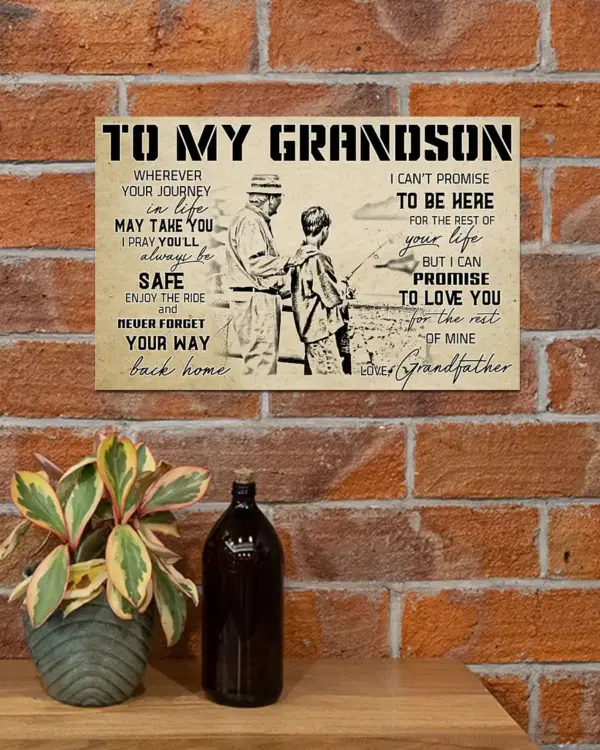 TO MY GRANDSON
WHEREVER
YOUR JOURNEY
in life
MAY TAKE YOU
I PRAY YOU'LL
always be
SAFE
ENJOY THE RIDE
and
NEVER FORGET
YOUR WAY
back home
I CAN'T PROMISE
TO BE HERE
FOR THE REST OF
your life
BUT I CAN
PROMISE
TO LOVE YOU
for the rest
OF MINE
LOVE, Grandfather